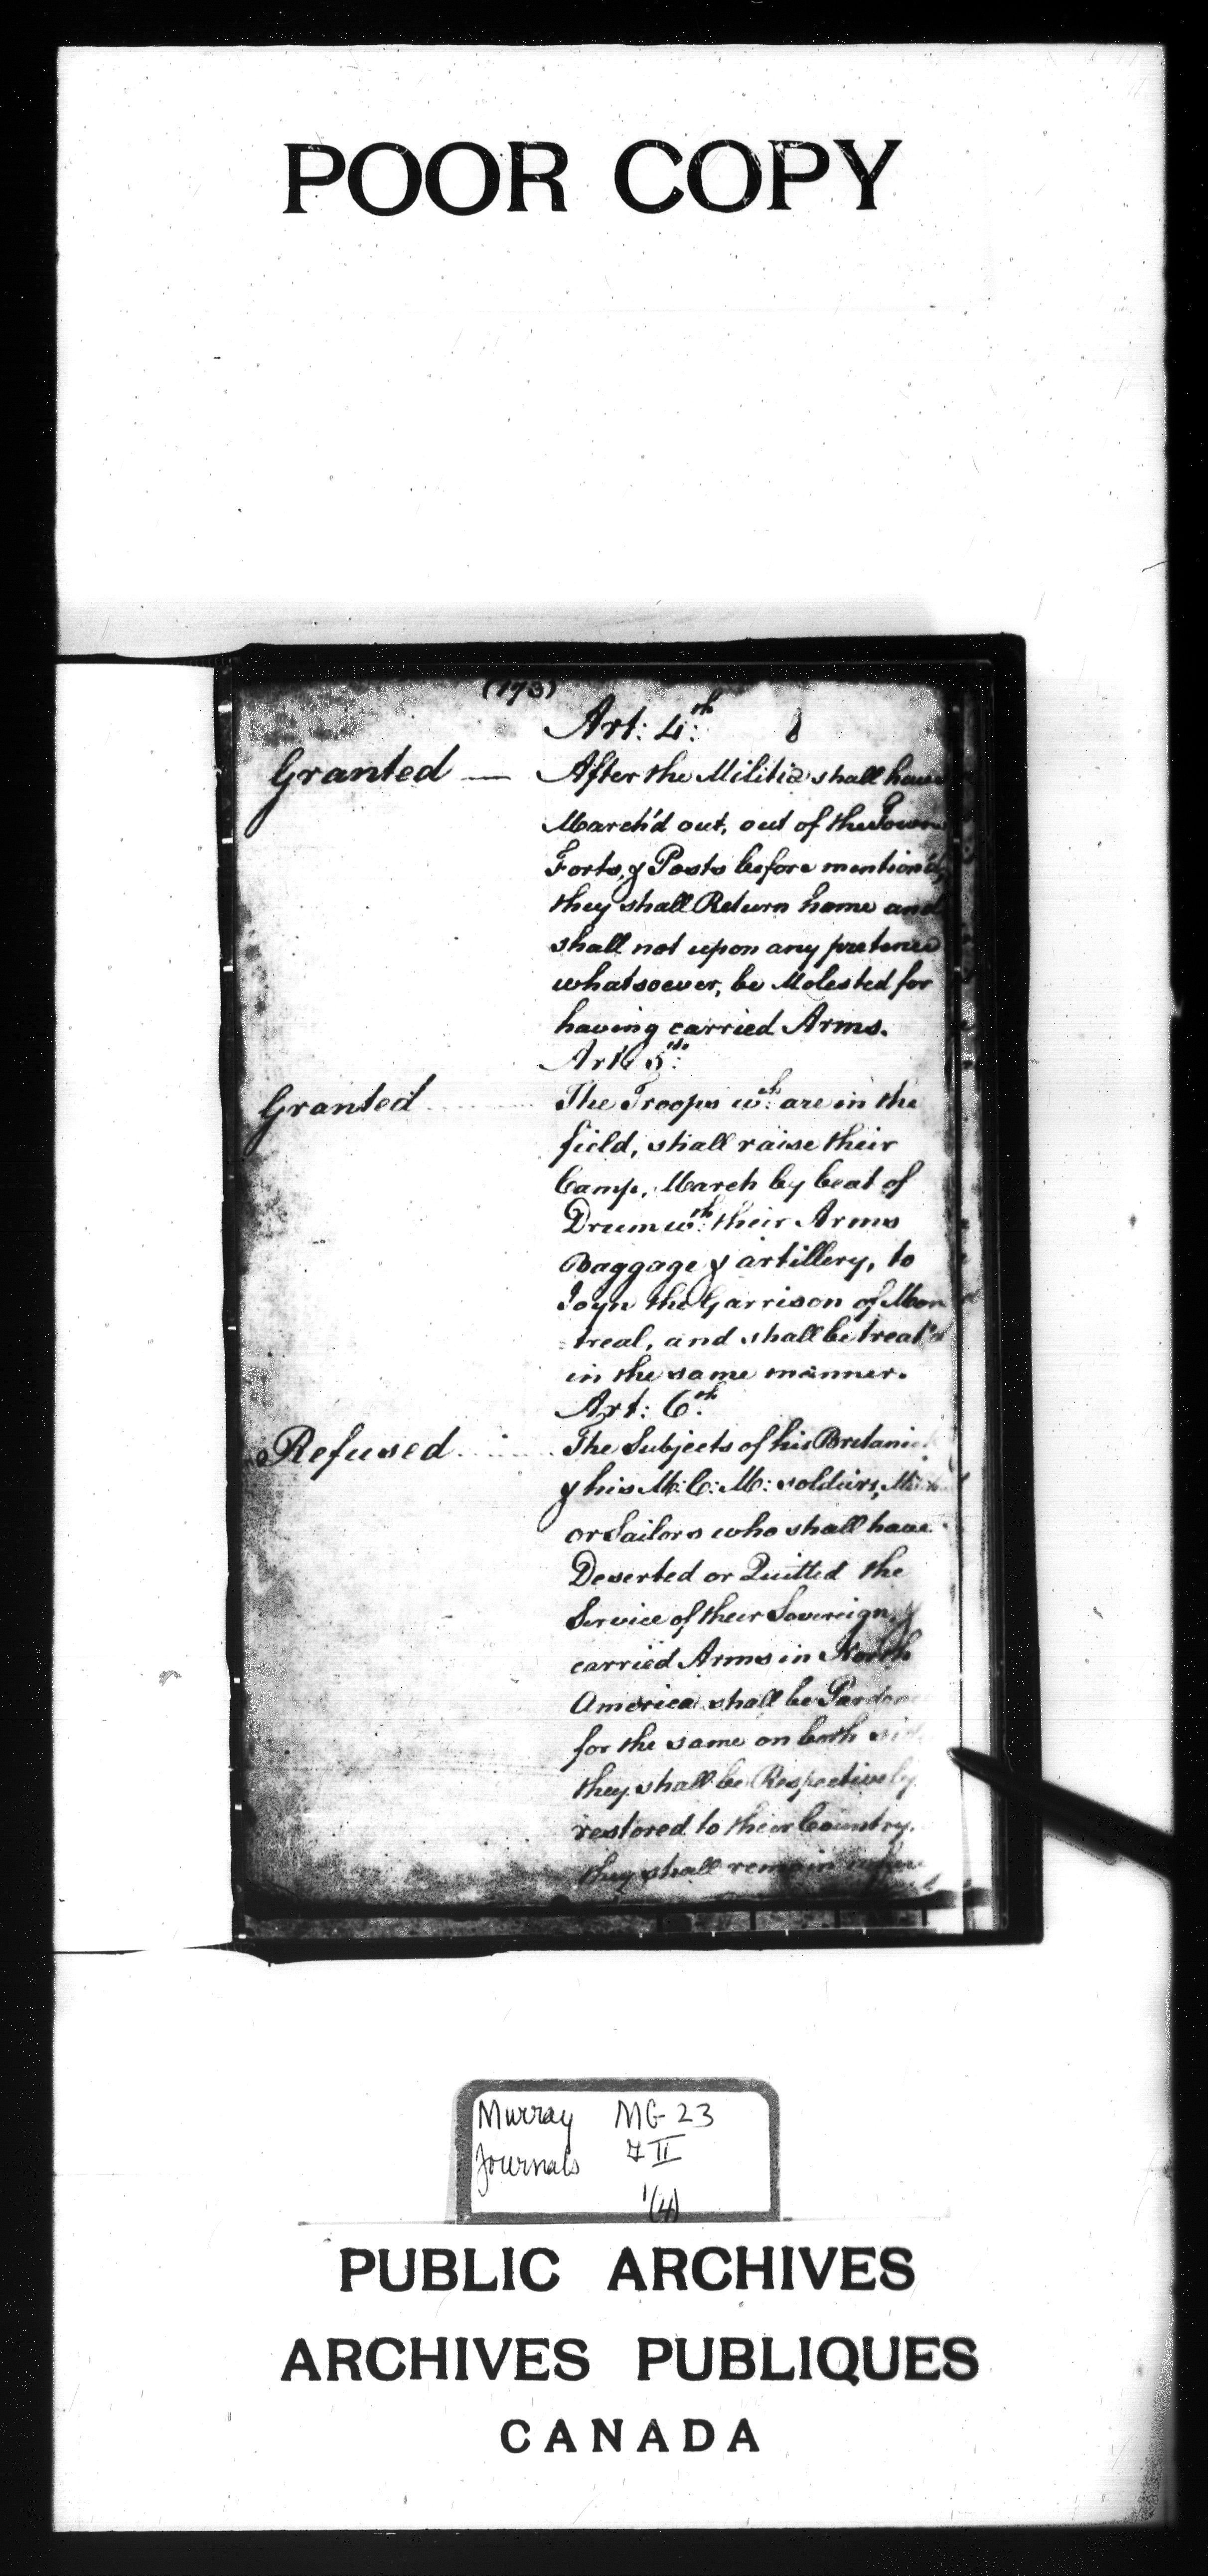 POOR COPY
(173)
Art: 4:th
Granted — After the Militia shall have
March'd out, out of the Town
Forts, & Posts before mention'd,
they shall Return home and
shall not upon any pretence
whatsoever, be Molested for
having carried Arms.
Art: 5:th
Granted ........ The Troops wch: are in the
field, shall raise their
Camp, March by beat of
Drum wth: their Arms
Baggage & artillery, to
Joyn the Garrison of Mon
=treal, and shall be treat'd
in the same manner.
Art: 6:th
Refused ........ The Subjects of his Britanick
& his M: C: M: soldiers,
or Sailors who shall have
Deserted or Quitted the
Service of their Sovereign, &
carried Arms in North
America shall be
for the same on both
they shall be Respectively
restored to their Country.
they shall remain where
Murray MG 23
Journals
1(4)
PUBLIC ARCHIVES
ARCHIVES PUBLIQUES
CANADA